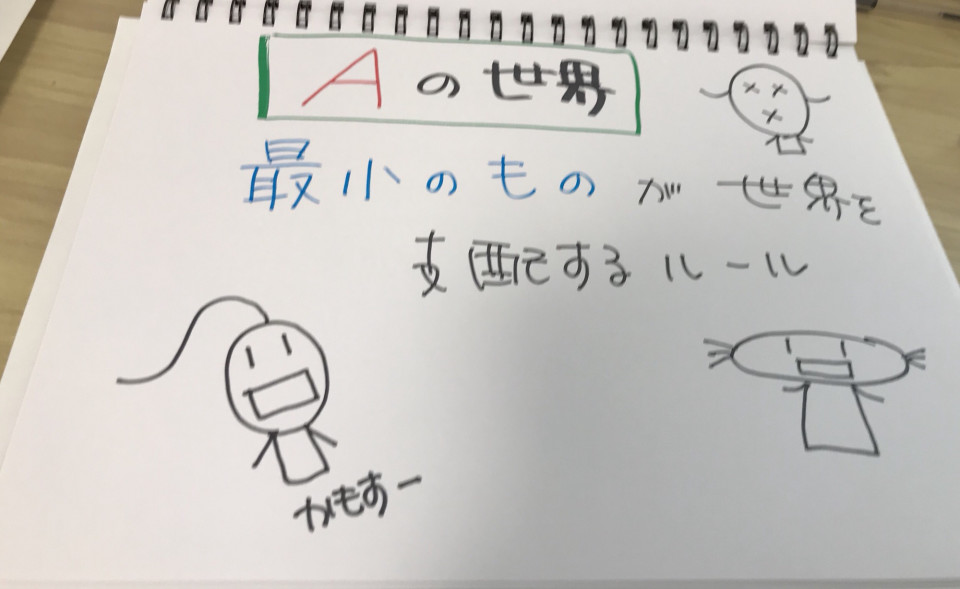 Aの世界
最小のものが世界を
支配するルール
かもあー